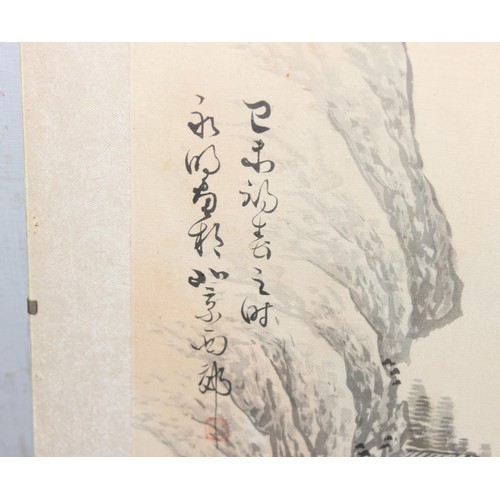 己未初春之时
永明画于北京西郊